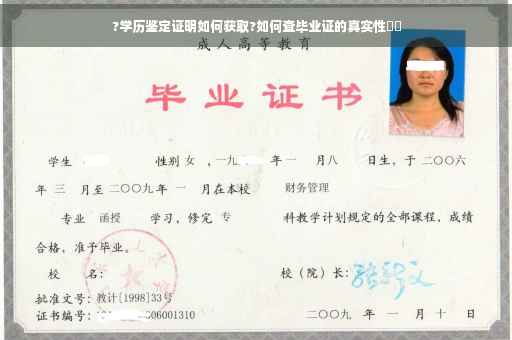 ?学历鉴定证明如何获取?如何查毕业证的真实性
成人高等教育
毕业证书
学生 性别 女 ，一九 年 一 月八 日生，于 二〇〇六
年 三 月至 二〇〇九 年 一 月在本校 财务管理
专业 函授 学习，修完 专 科教学计划规定的全部课程，成绩
合格，准予毕业。
校 名： 校（院）长：
批准文号：教计[1998]33号
证书编号： 06001310 二〇〇九 年 一 月 十 日